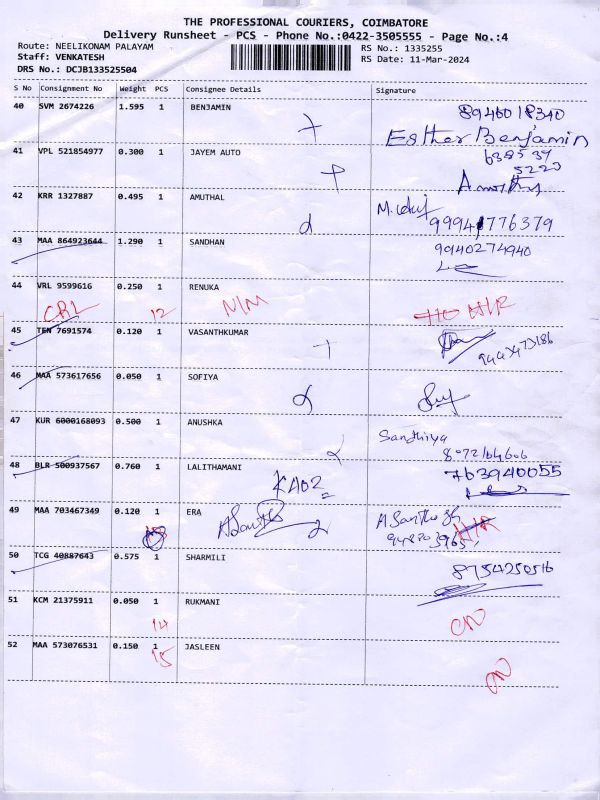 THE PROFESSIONAL COURIERS, COIMBATORE
Delivery Runsheet - PCS - Phone No.:0422-3505555 - Page No.:4
Route: NEELIKONAM PALAYAM
RS No.: 1335255
Staff: VENKATESH
RS Date: 11-Mar-2024
DRS No.: DCJB133525504
S No Consignment No Weight PCS Consignee Details Signature
40 SVM 2674226 1.595 1 BENJAMIN
8946018340
Esther Benjamin
41 VPL 521854977 0.300 1 JAYEM AUTO
638539
5220
42 KRR 1327887 0.495 1 AMUTHAL
99941776379
43 MAA 864923644 1.290 1 SANDHAN
9940274940
44 VRL 9599616 0.250 1 RENUKA
CRL 12 N/M
45 TEN 7691574 0.120 1 VASANTHKUMAR
9443473186
46 MAA 573617656 0.050 1 SOFIYA
47 KUR 6000168093 0.500 1 ANUSHKA
Sandhiya
8072164606
48 BLR 500937567 0.760 1 LALITHAMANI
763940055
KA02
49 MAA 703467349 0.120 1 ERA
A Santhosh
50 TCG 40887643 0.575 1 SHARMILI
8754250516
51 KCM 21375911 0.050 1 RUKMANI
14
52 MAA 573076531 0.150 1 JASLEEN
15